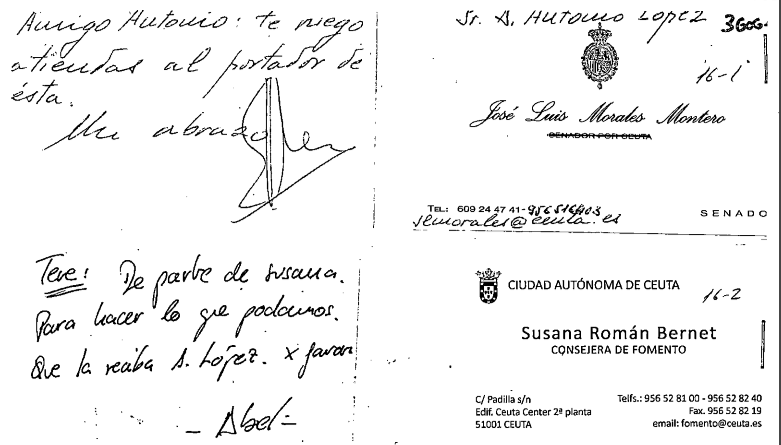 Amigo Antonio: te ruego
atiendas al portador de
ésta.
Un abrazo
Sr. D. Antonio López
16-1
José Luis Morales Montero
SENADOR POR CEUTA
TEL: 609 24 47 41-956516403
jlmorales@ceuta.es
SENADO
Tere: De parte de susana.
Para hacer lo que podamos.
Que la reciba A. López. x favor
- Abel -
CIUDAD AUTÓNOMA DE CEUTA
16-2
Susana Román Bernet
CONSEJERA DE FOMENTO
C/ Padilla s/n
Edif. Ceuta Center 2ª planta
51001 CEUTA
Telfs.: 956 52 81 00 - 956 52 82 40
Fax. 956 52 82 19
email: fomento@ceuta.es